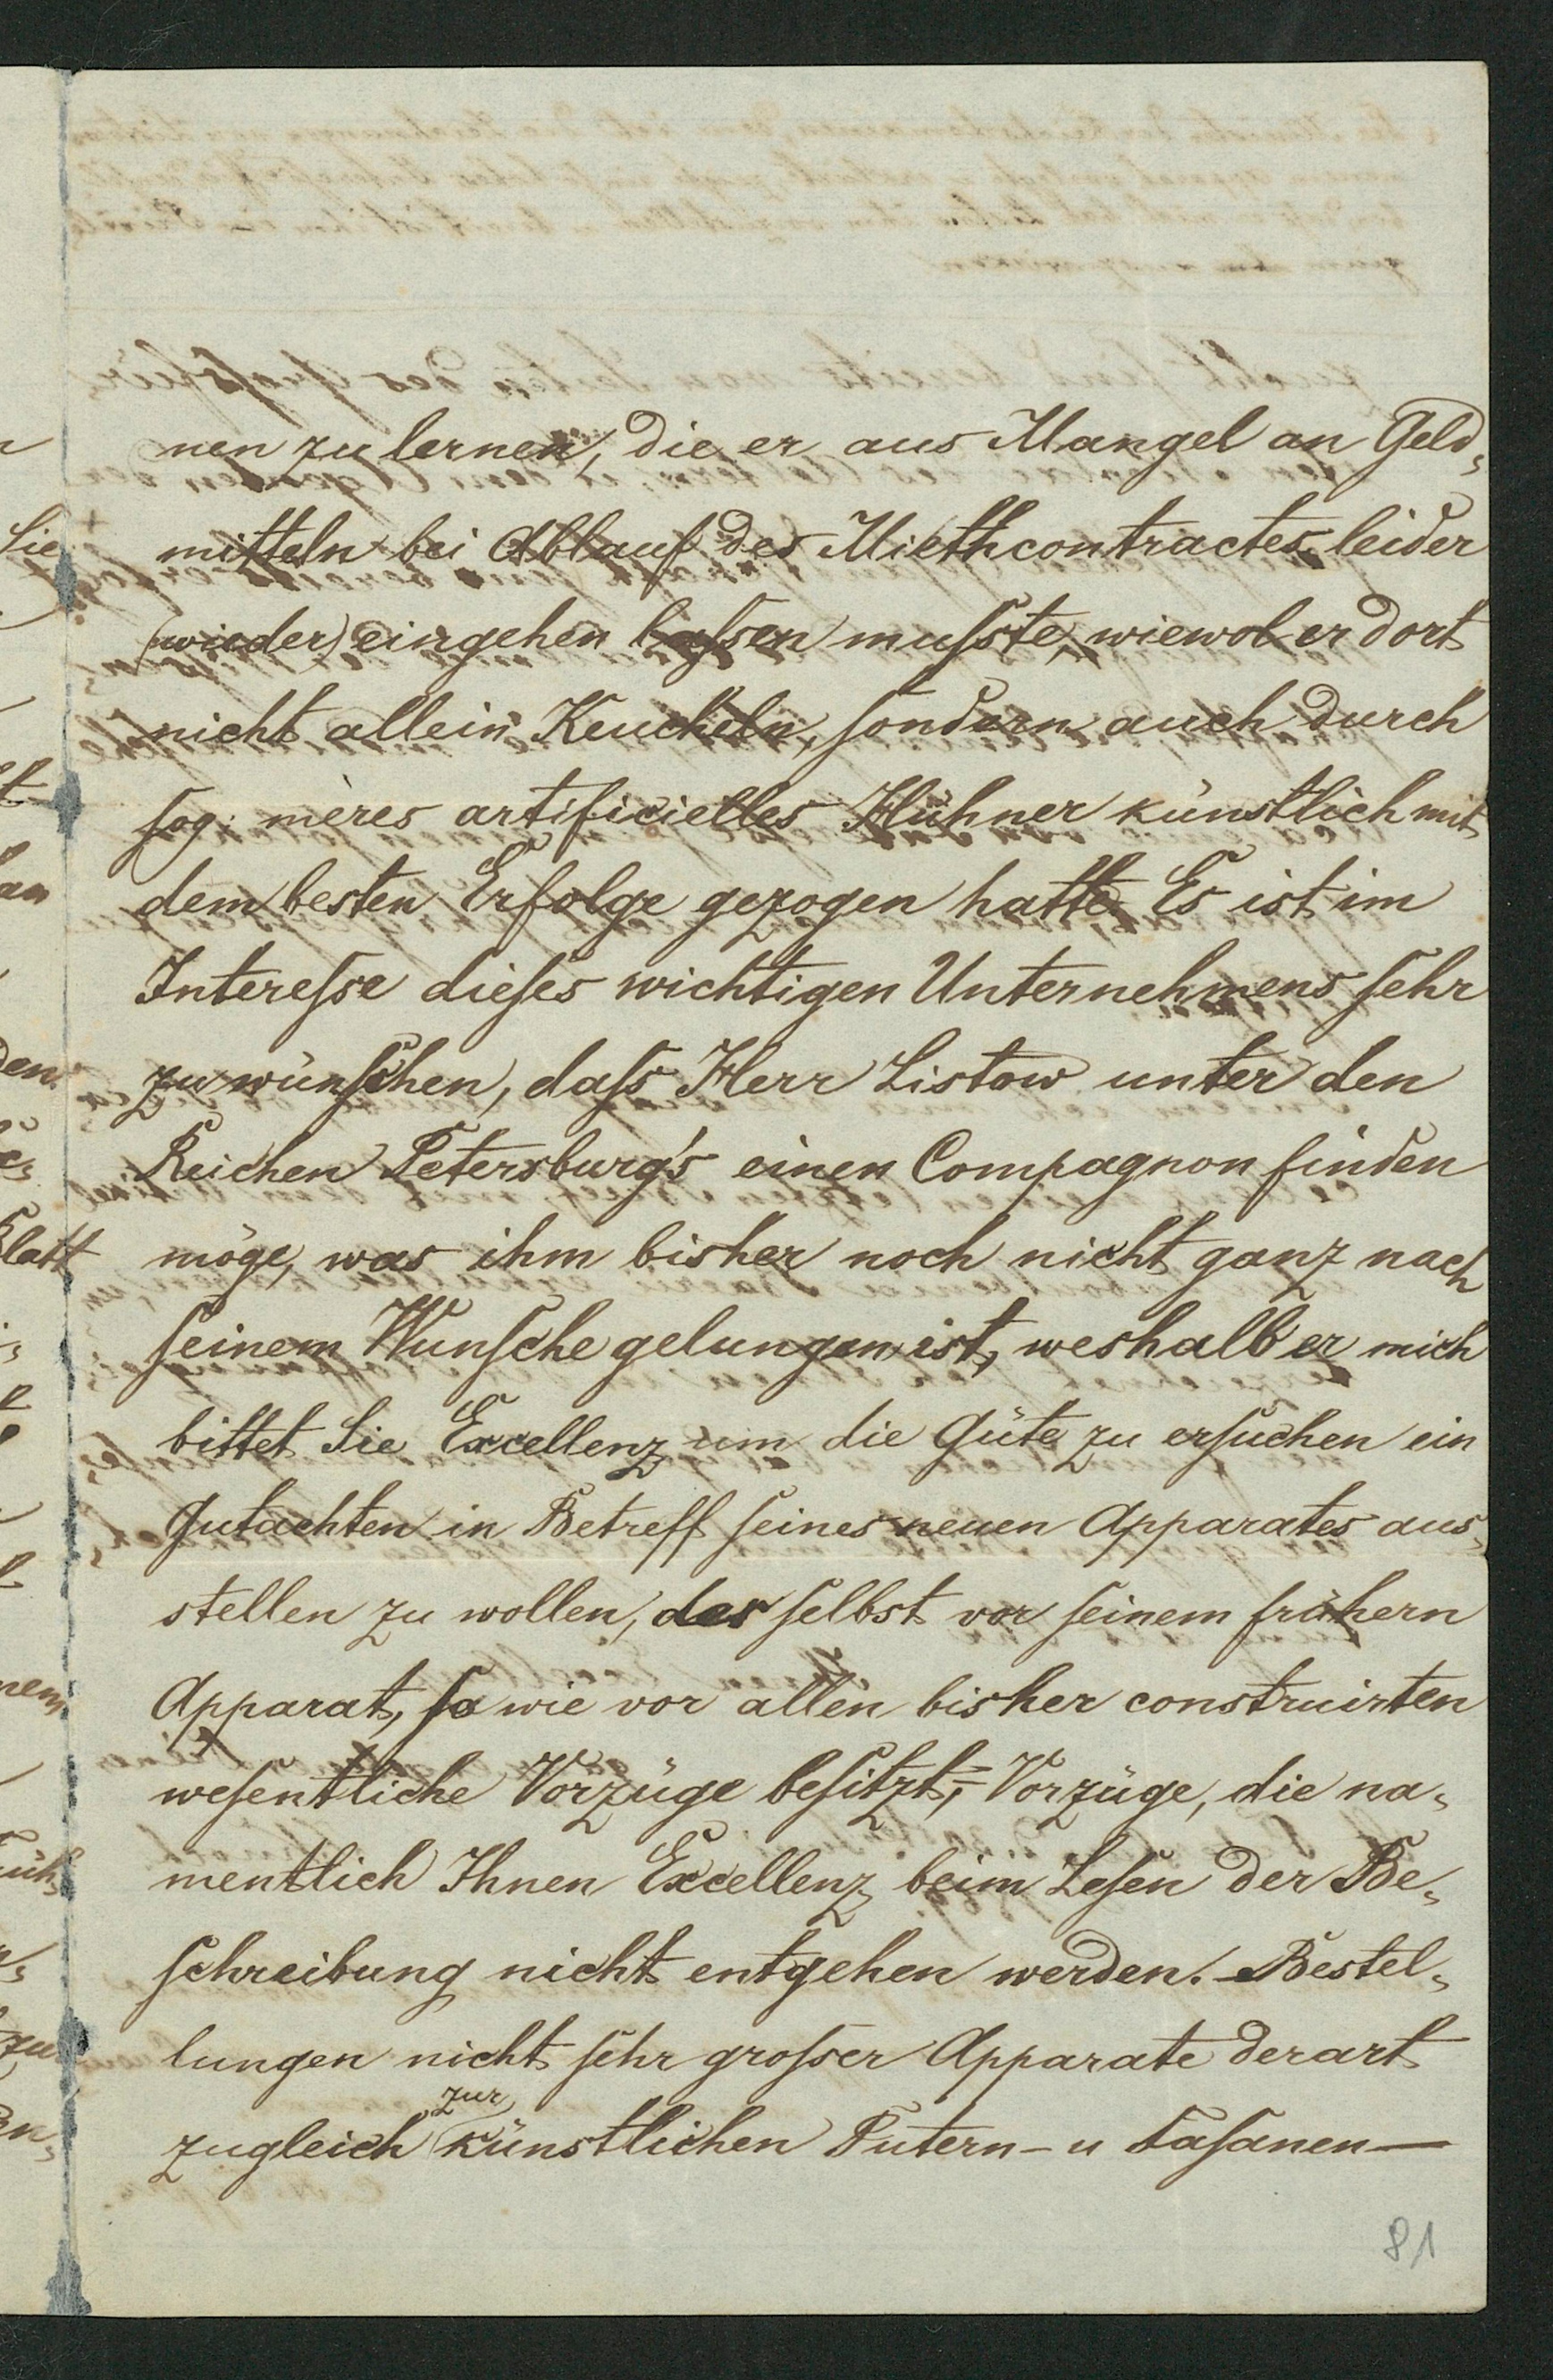 nen zu lernen, die er aus Mangel an Geld„
mitteln bei Ablauf des Miethcontractes leider
(wieder) eingehen lassen musste, wiewol er dort
nicht allein Keucheln, sondern auch durch
sog. mères artificielles Hühner künstlich mit
dem besten Erfolge gezogen hatte. Es ist im
Interesse dieses wichtigen Unternehmens sehr
zu wünschen, dass Herr Listow unter den
Reichen Petersburg's einen Compagnon finden
möge, was ihm bisher noch nicht ganz nach
seinem Wunsche gelungen ist, weshalb er mich
bittet Sie Excellenz um die Güte zu ersuchen ein
Gutachten in Betreff seines neuen Apparates aus„
stellen zu wollen, der selbst vor seinem frühern
Apparat, so wie vor allen bisher construirten
wesentliche Vorzüge besitzt, – Vorzüge, die na„
mentlich Ihnen Excellenz beim Lesen der Be„
schreibung nicht entgehen werden. – Bestel„
lungen nicht sehr grosser Apparate derart
zugleich zur künstlichen Putern- u Fasanen—
81